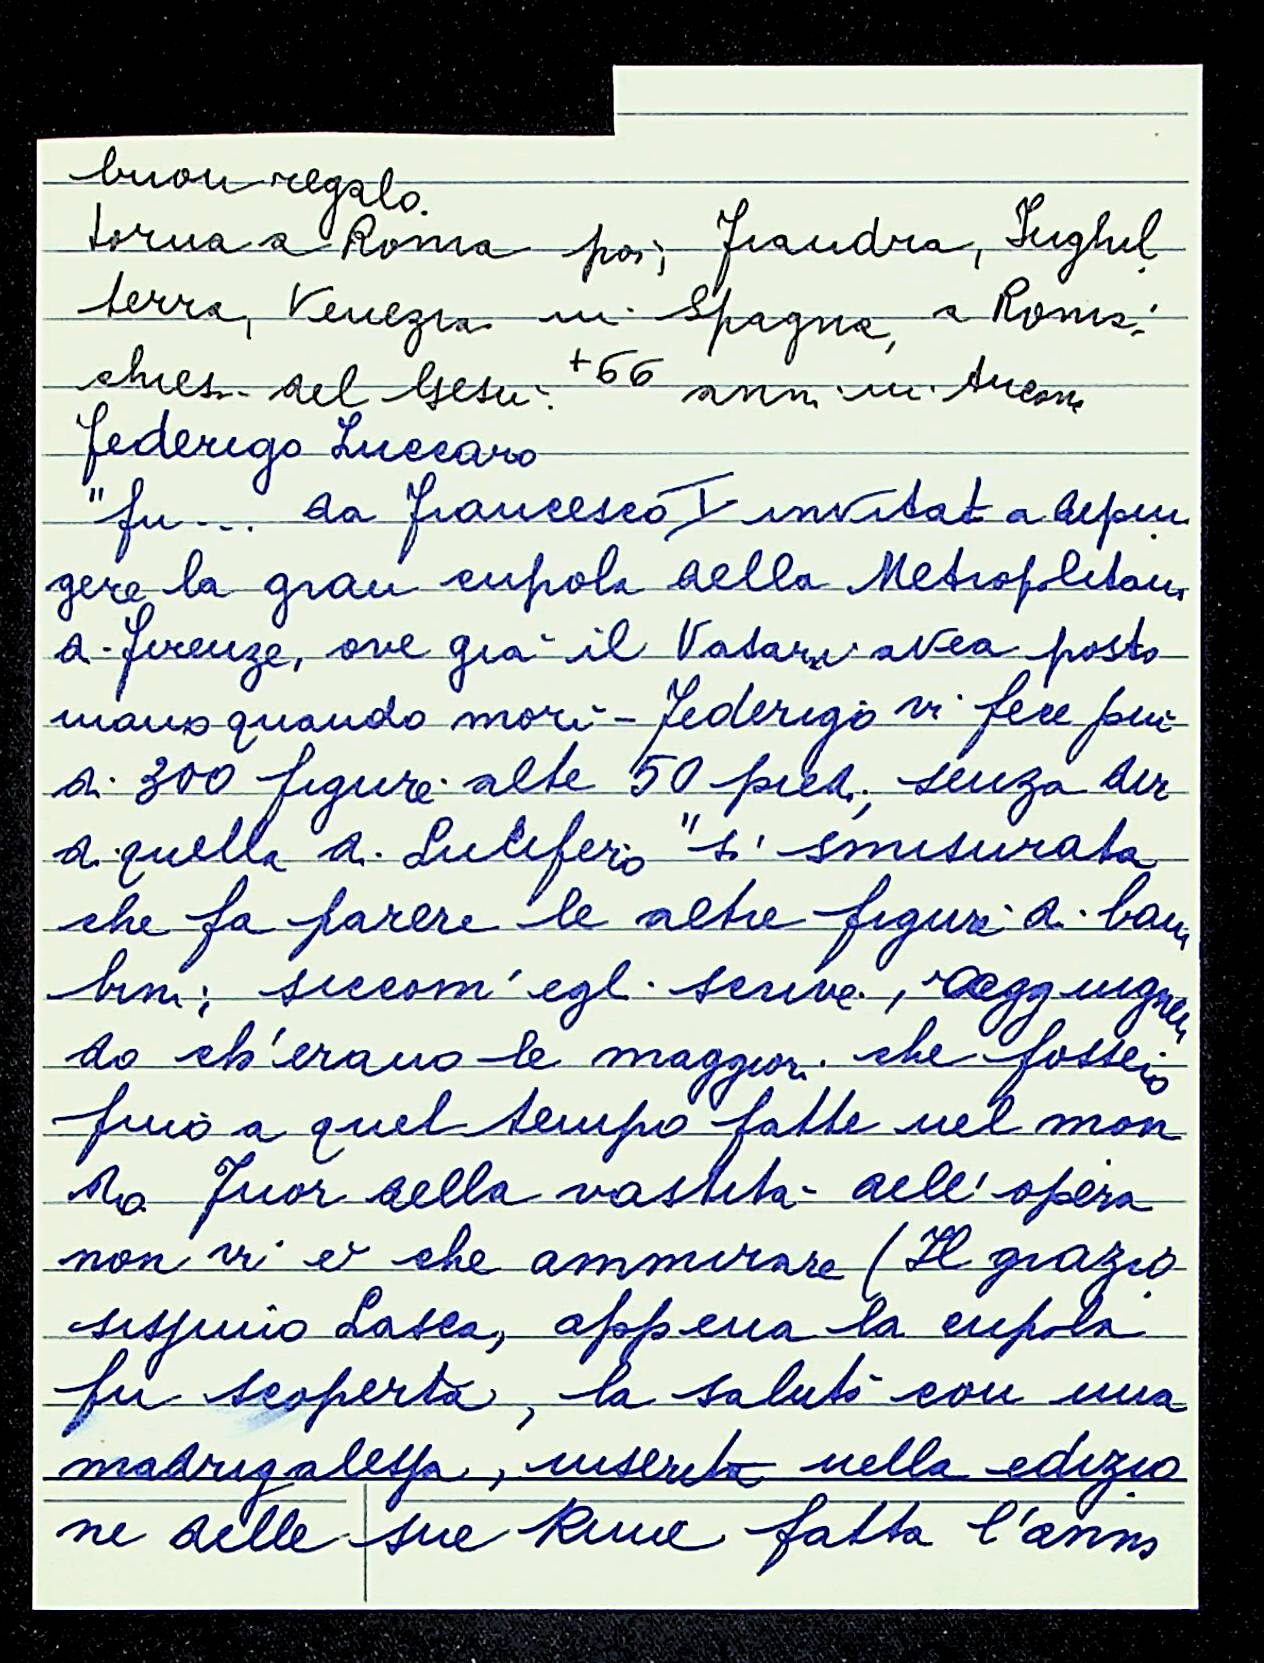 buon regalo.
torna a Roma poi, Fiandra, Inghil
terra, Venezia in Spagna, a Roma:
chiesa del Gesù. +66 anni in Ancona
Federigo Zuccaro
"fu... da Francesco I invitat a dipin
gere la gran cupola della Metropolitan.
di Firenze, ove già il Vasari avea posto
mano quando morì - Federigo vi fece più
di 300 figure alte 50 piedi, senza dir
di quella di Lucifero "sì smisurata
che fa parere le altre figure di bam
bini; siccom' egli scrive, raggiugnen
do ch'erano le maggiori che fossero
fino a quel tempo fatte nel mon
do Fuor della vastità dell'opera
non vi è che ammirare (Il grazio
sissimo Lasca, appena la cupola
fu scoperta, la salutò con una
madrigalessa, inserita nella edizio
ne delle sue Rime fatta l'anno